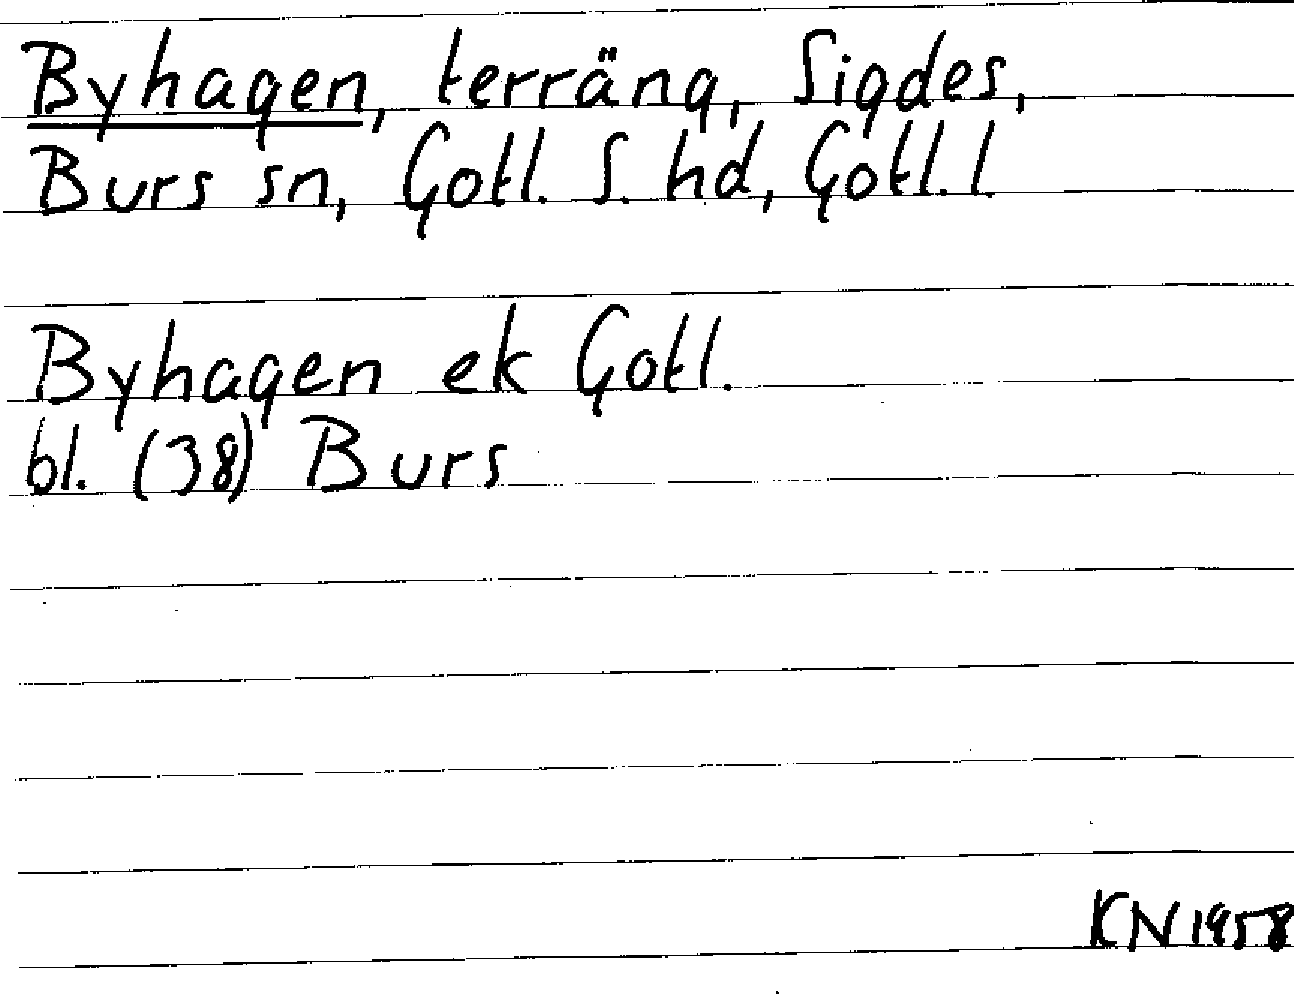 Byhagen, terräng, Sigdes,
Burs sn, Gotl. S. hd, Gotl. l.
Byhagen ek Gotl.
bl. (38) Burs
KN 1958